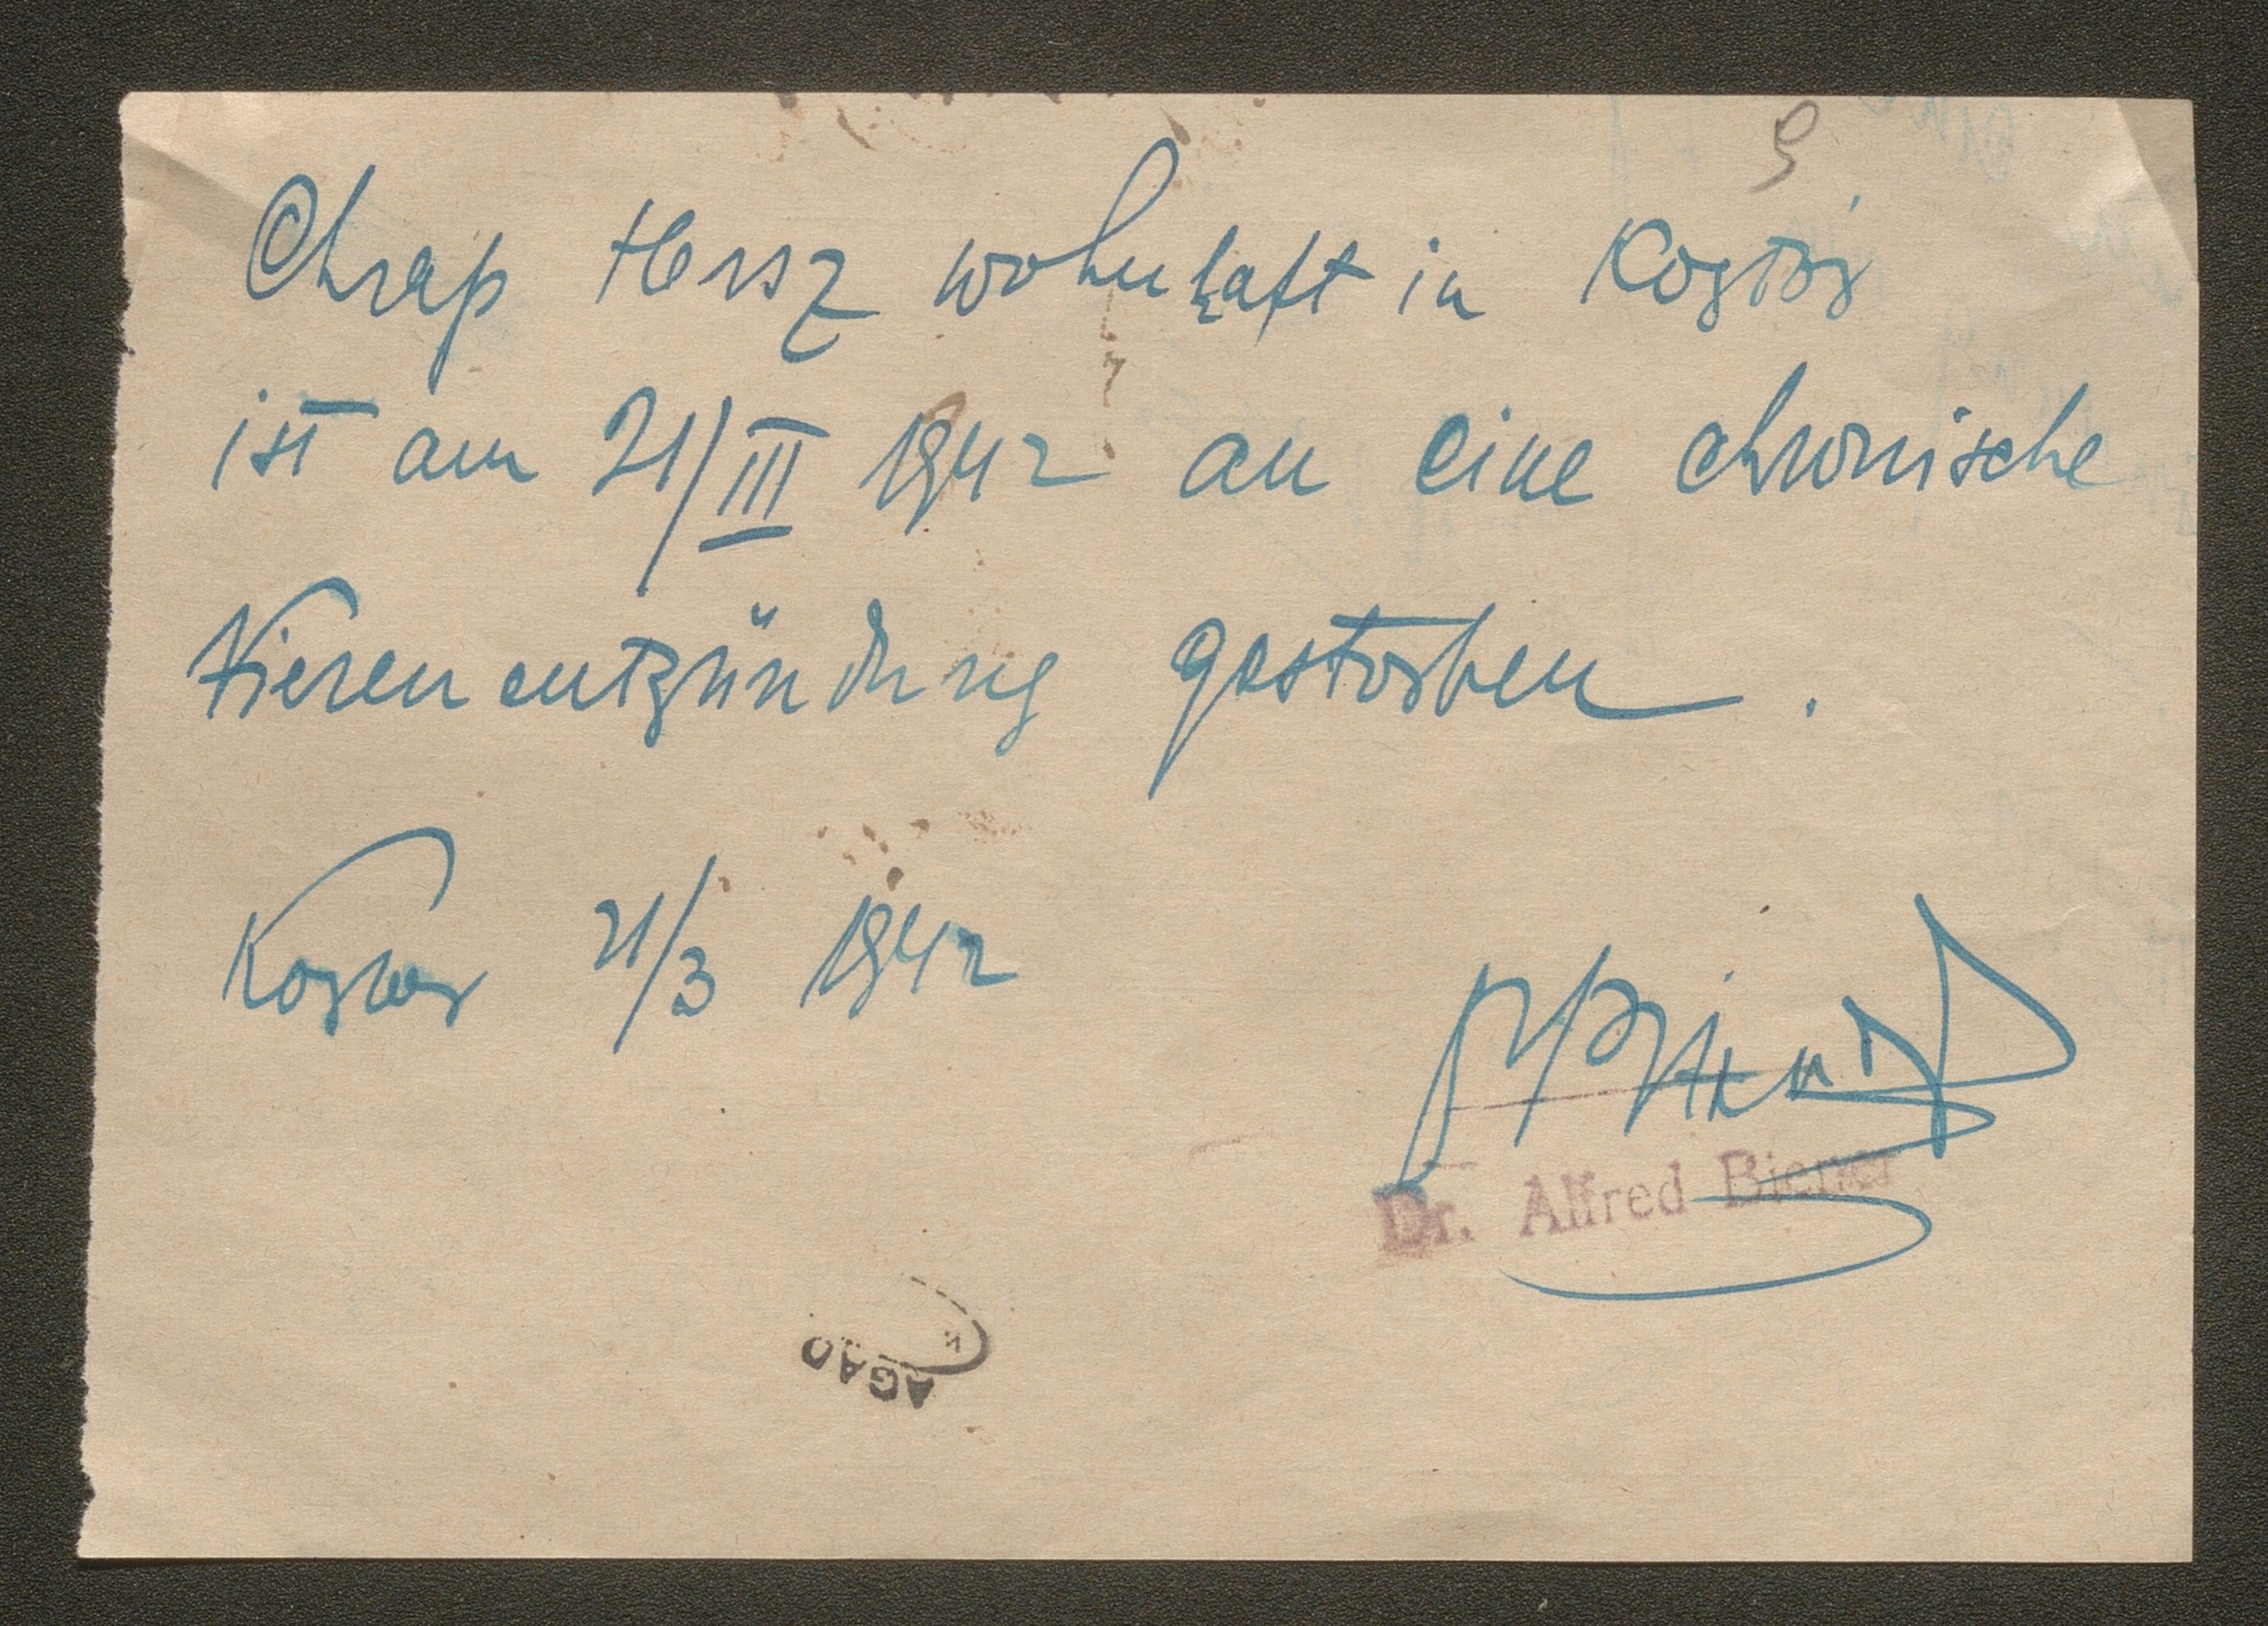 9
Chrap Hersz wohnhaft in Kozów
ist am 21/III 1942 an eine chronische
Nierenentzündung gestorben.
Kozowa 21/3 1942
Dr. Alfred Biener
AGAD